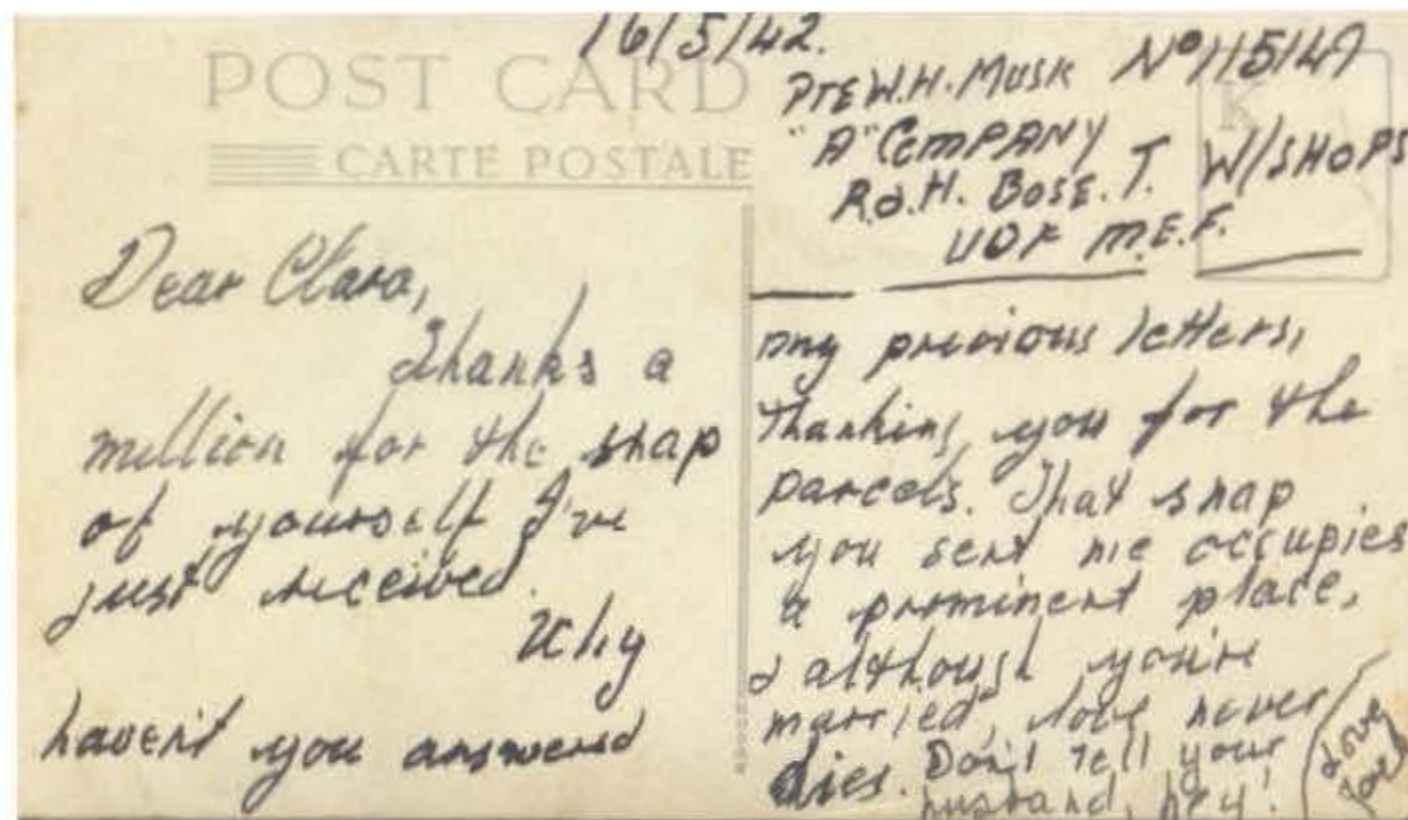 16/5/42.
POST CARD
CARTE POSTALE
PTE W.H. MUSK No 115147
"A" COMPANY
R.&.H. BOSE. T. W/SHOPS
UDF M.E.F.
Dear Clara,
Thanks a
million for the snap
of yourself I've
just received.
Why
haven't you answered
my previous letters,
thanking you for the
parcels. That snap
you sent me occupies
a prominent place,
& although you're
married, love never
dies. Don't tell your
husband, hey!
Love
K